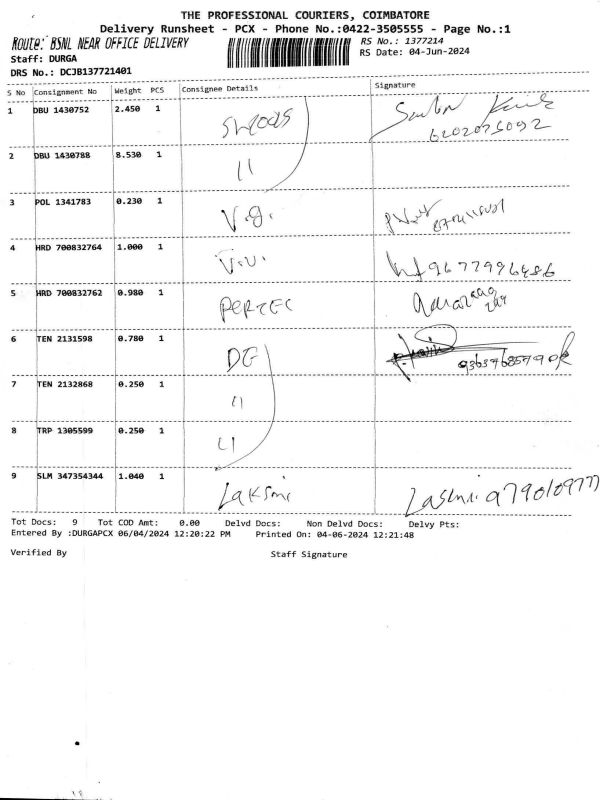 THE PROFESSIONAL COURIERS, COIMBATORE
Delivery Runsheet - PCX - Phone No.:0422-3505555 - Page No.:1
Route: BSNL NEAR OFFICE DELIVERY
RS No.: 1377214
Staff: DURGA
RS Date: 04-Jun-2024
DRS No.: DCJB137721401
S No Consignment No Weight PCS Consignee Details Signature
1 DBU 1430752 2.450 1
2 DBU 1430788 8.530 1 11
3 POL 1341783 0.230 1 V.g.
4 HRD 700832764 1.000 1 V.V. 9677996486
5 HRD 700832762 0.980 1
6 TEN 2131598 0.780 1 DG
7 TEN 2132868 0.250 1 11
8 TRP 1305599 0.250 1 11
9 SLM 347354344 1.040 1 Laksmi
Tot Docs: 9 Tot COD Amt: 0.00 Delvd Docs: Non Delvd Docs: Delvy Pts:
Entered By :DURGAPCX 06/04/2024 12:20:22 PM Printed On: 04-06-2024 12:21:48
Verified By Staff Signature